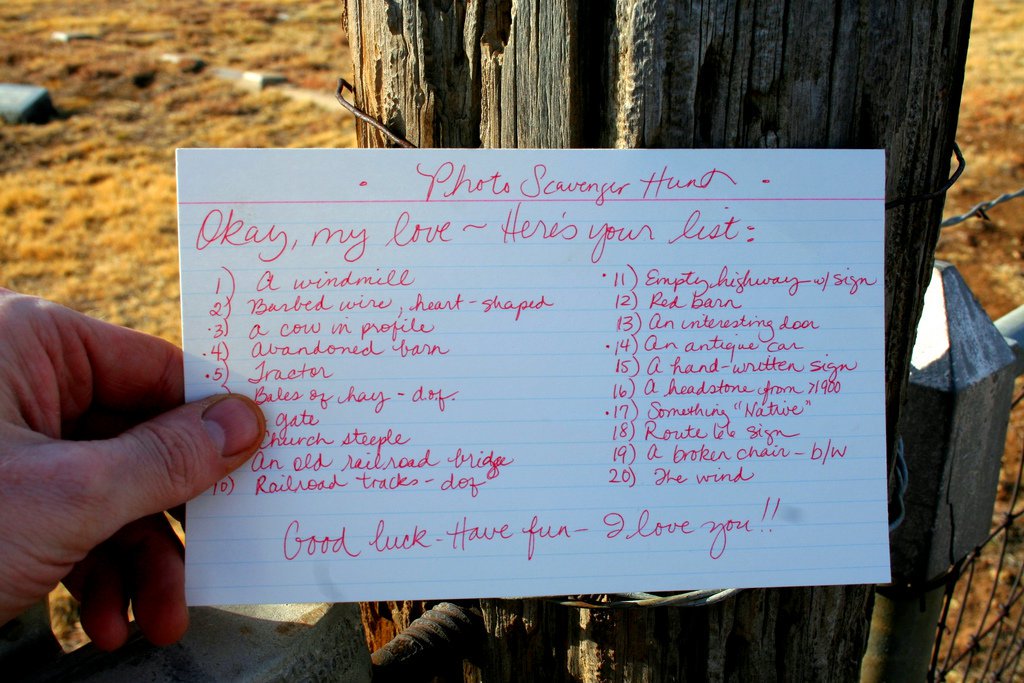 · Photo Scavenger Hunt ·
Okay, my love ~ Here's your list:
1) A windmill
2) Barbed wire, heart-shaped
·3) a cow in profile
·4) Abandoned barn
·5) Tractor
Bales of hay - dof.
gate
Church steeple
An old railroad bridge
10) Railroad tracks - dof
·11) Empty highway w/ sign
12) Red Barn
13) An interesting door
·14) An antique car
15) A hand-written sign
16) A headstone from >1900
·17) Something "Native"
18) Route 66 sign
19) A broken chair - b/w
20) The wind
Good luck - Have fun - I love you!!